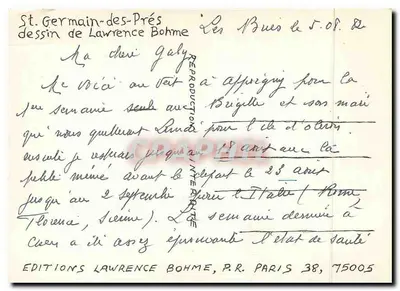 St. Germain-des-Prés
dessin de Lawrence Bohme
Les Buis le 5.08.82
Ma chère Gaby
Me voici au vert à pour la
1ère semaine seule avec Brigitte et son mari
qui nous quitteront Lundi pour l'île d'oleron
ensuite je resterai jusqu'au 18 août avec la
petite mémé avant le départ le 23 août
jusqu'au 2 septembre pour l'Italie (Rome,
Florence, Sienne). La semaine dernière à
Caen a été assez éprouvante l'état de santé
REPRODUCTION INTERDITE
EDITIONS LAWRENCE BOHME, P.R. PARIS 38, 75005